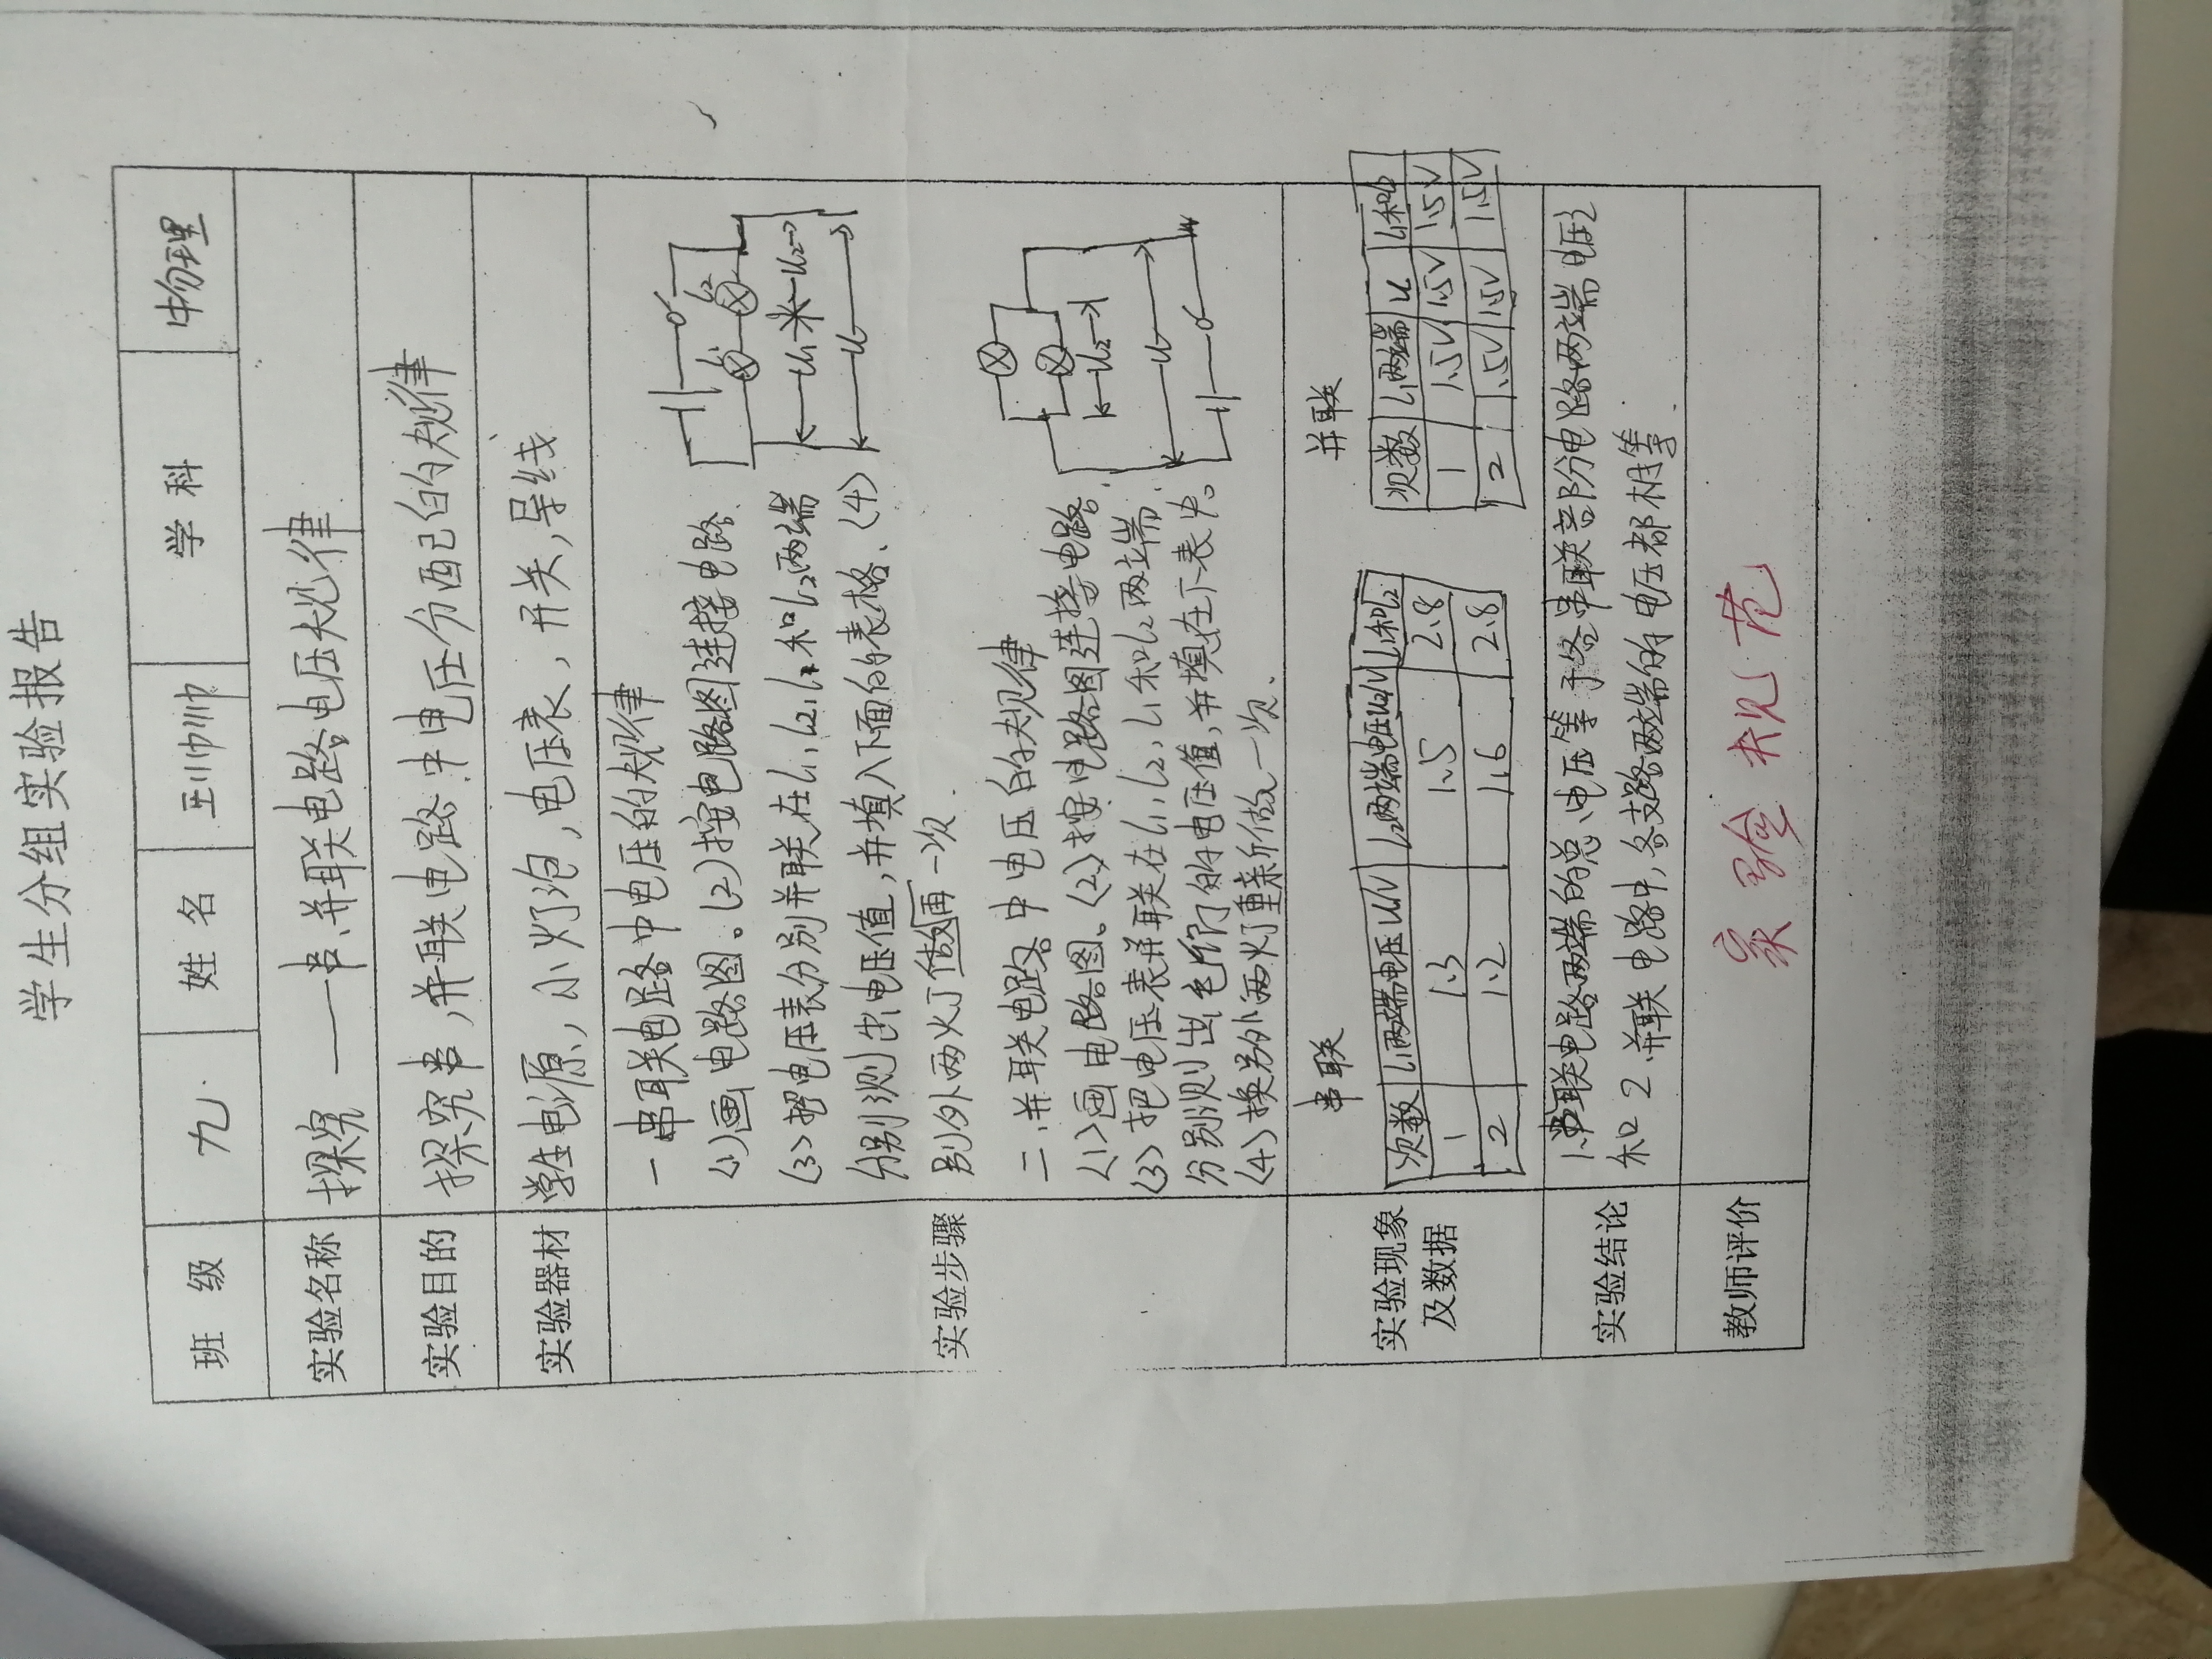 学生分组实验报告
班 级 九 姓 名 王帅帅 学 科 物理
实验名称 探究——串、并联电路电压规律
实验目的 探究串,并联电路中电压分配的规律
实验器材 学生电源,小灯泡,电压表,开关,导线
实验步骤
一 串联电路中电压的规律
(1)画电路图。(2)按电路图连接电路
(3)把电压表分别并联在L1,L2,L1和L2两端
分别测出电压值,并填入下面的表格、(4)
别外两火丁做再一次
L1 L2
U1 U2
U
二、并联电路中电压的规律
(1)画电路图。(2)按电路图连接电路
(3)把电压表并联在L1,L2,L1和L2两端
分别测出它们的电压值,并填在下表中。
(4)换另外两灯重新做一次.
U2
U
实验现象
及数据
串联
次数 L1两端电压U1/V L2两端电压U2/V L1和L2
1 1.3 1.5 2.8
2 1.2 1.6 2.8
并联
次数 L1两端 U L1和L2
1 1.5V 1.5V 1.5V
2 1.5V 1.5V 1.5V
实验结论
1.串联电路两端的总电压等于各串联部分电路两端电压之
和 2.并联电路中,各支路两端的电压都相等.
教师评价 实验规范